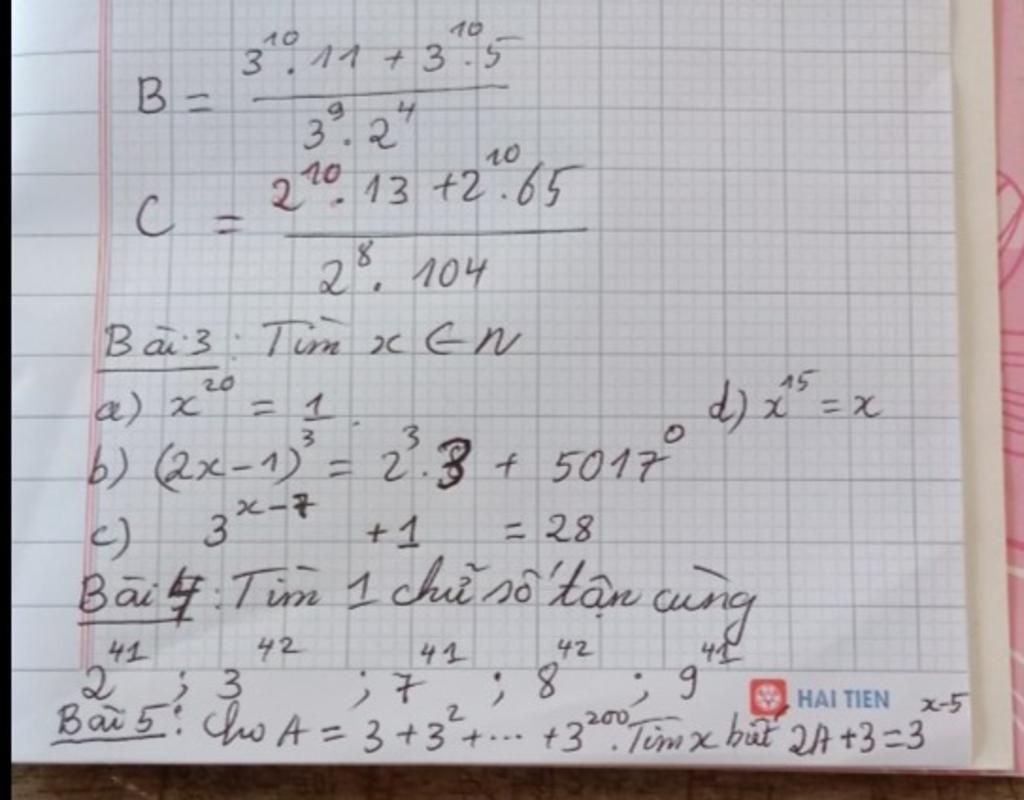 B = (3^10 . 11 + 3^10 . 5) / (3^9 . 2^4)
C = (2^10 . 13 + 2^10 . 65) / (2^8 . 104)
Bài 3 : Tìm x ∈ N
a) x^20 = 1. d) x^15 = x
b) (2x - 1)^3 = 2^3 . 3 + 5017^0
c) 3^(x-7) + 1 = 28
Bài 4 : Tìm 1 chữ số tận cùng
2^41 ; 3^42 ; 7^41 ; 8^42 ; 9^41
HAI TIEN
Bài 5 : Cho A = 3 + 3^2 + ... + 3^200. Tìm x biết 2A + 3 = 3^(x-5)